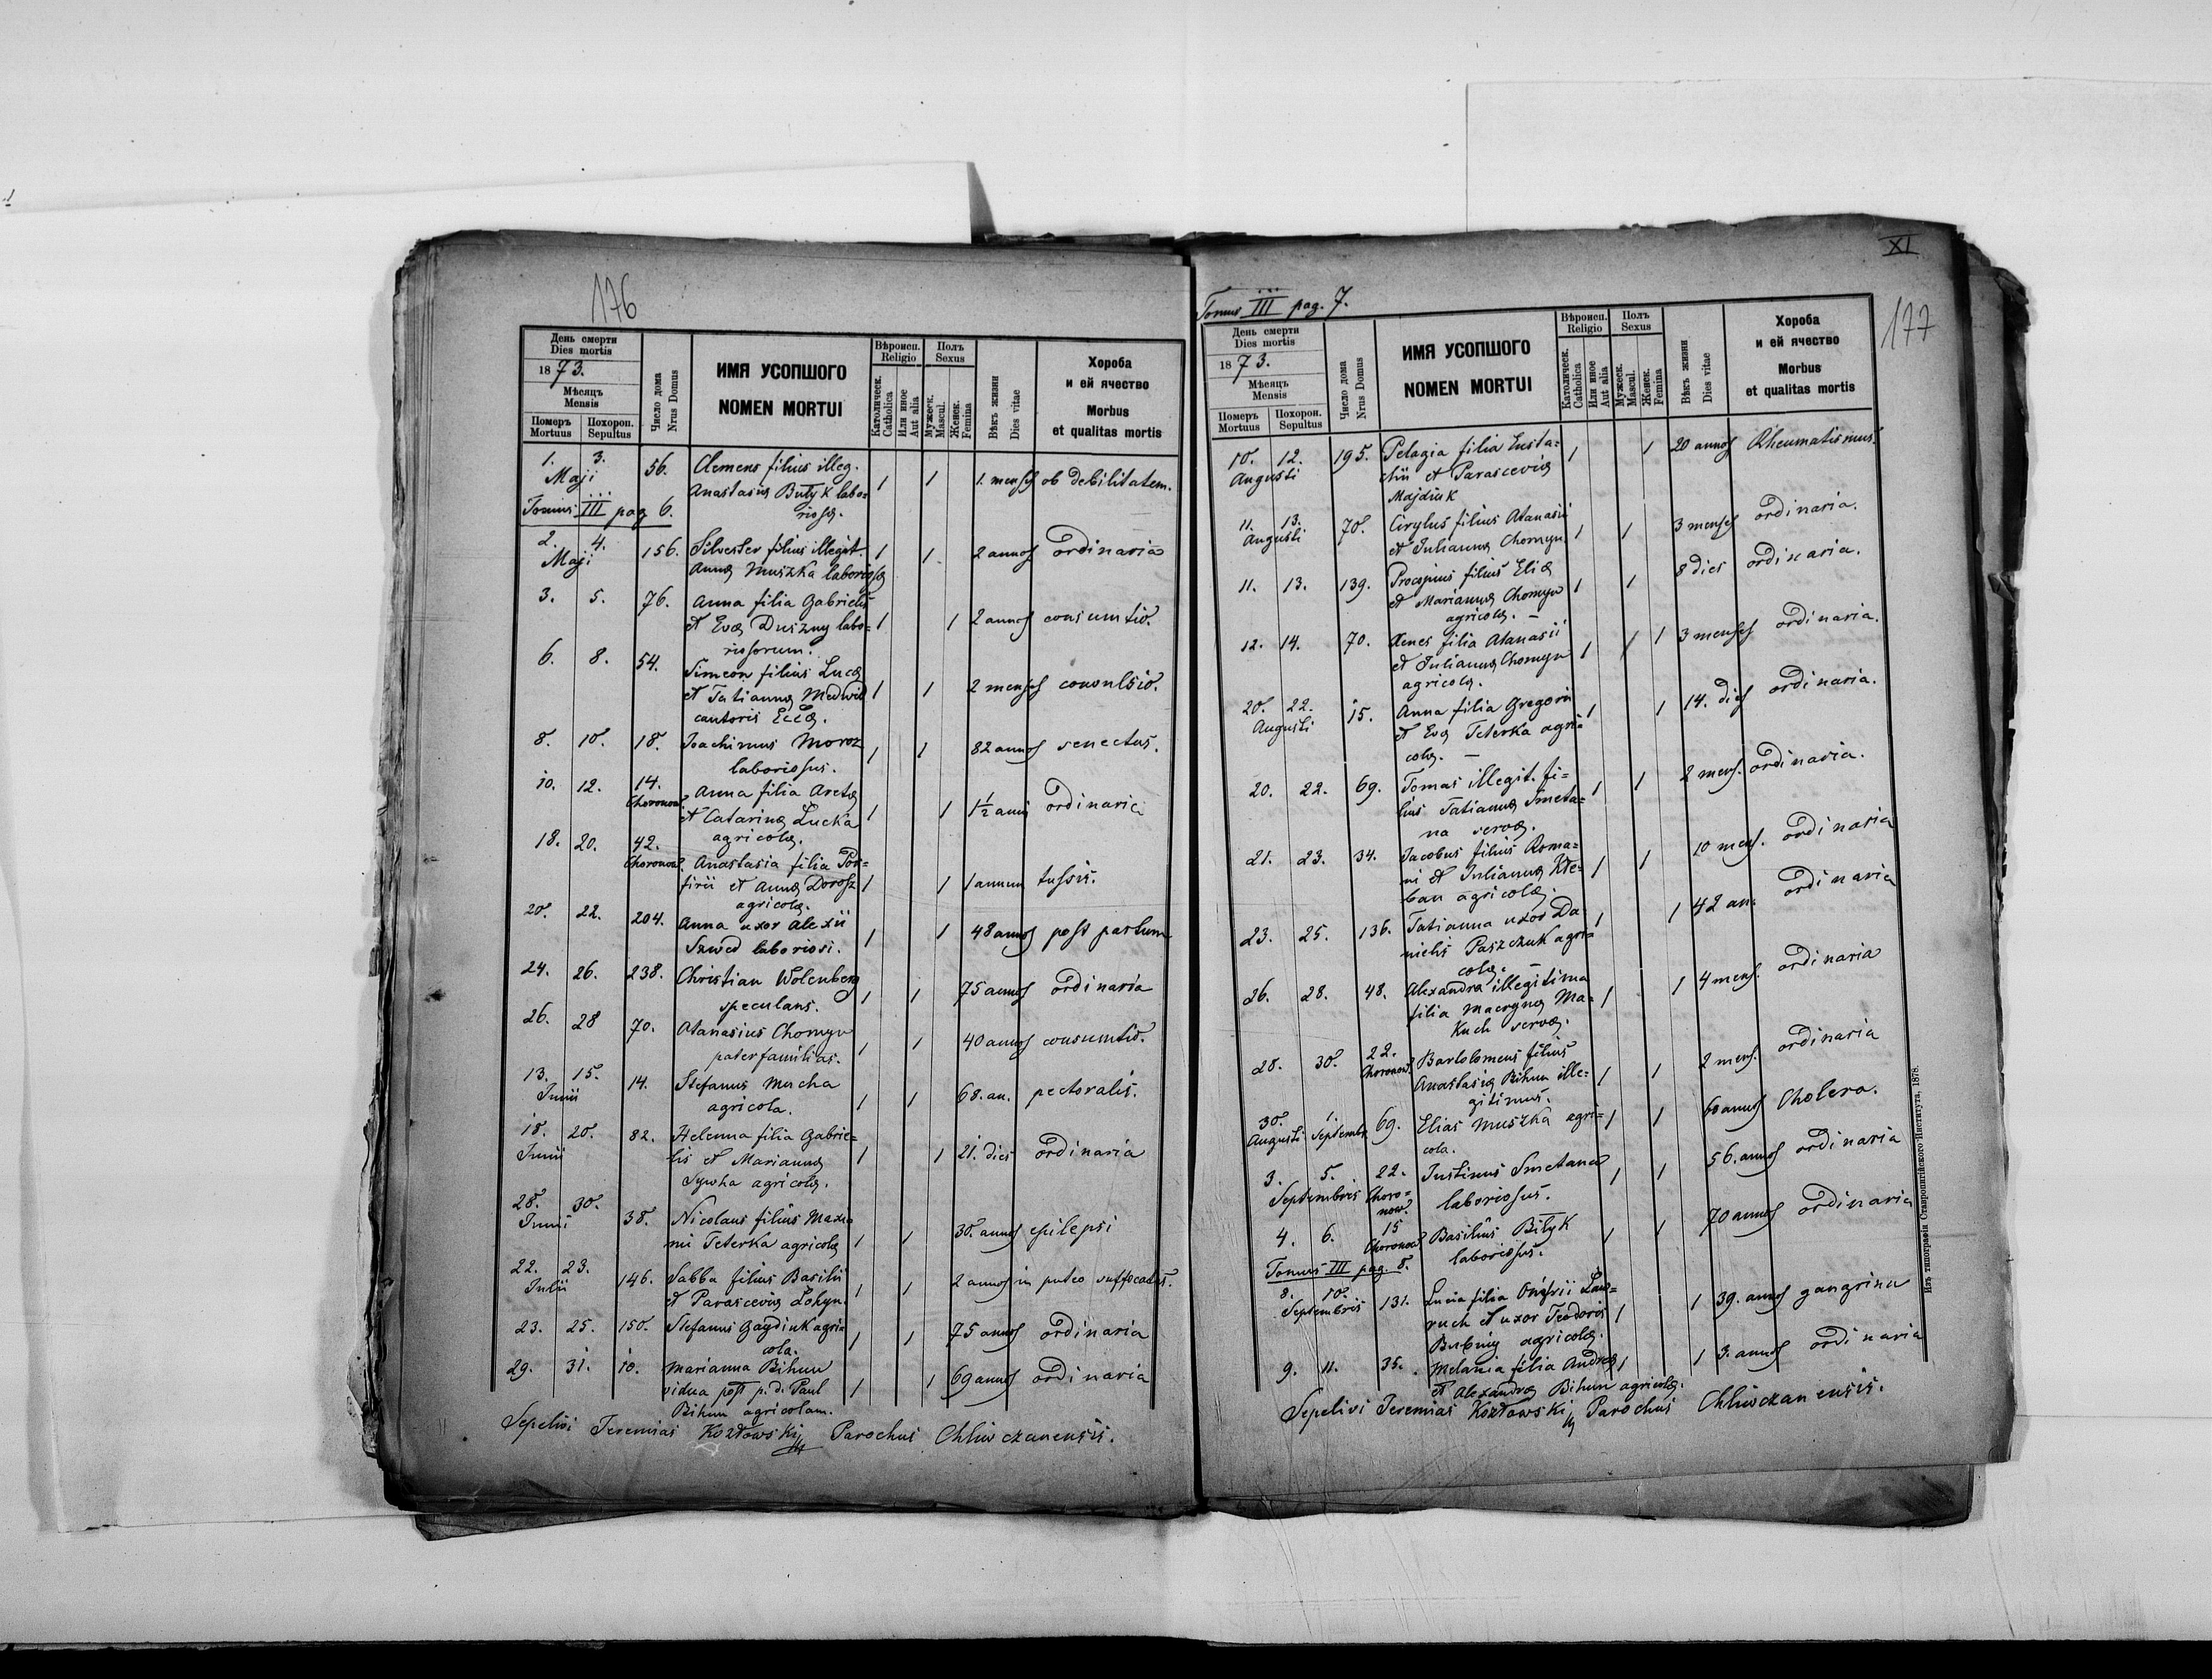 176
День смерти
Dies mortis
1873.
Мѣсяцъ
Mensis
Померъ
Mortuus
Похорон.
Sepultus
Число дома
Nrus Domus
ИМЯ УСОПШОГО
NOMEN MORTUI
Вѣроисп.
Religio
Католическ.
Catholica
Или иное
Aut alia
Полъ
Sexus
Мужеск.
Mascul.
Женск.
Femina
Вѣкъ жизни
Dies vitae
Хороба
и ей ячество
Morbus
et qualitas mortis
1. 3. 56. Clemens filius illeg. 1 1 1. mens ob debilitatem.
Maji Anastasiæ Bułyk labo=
Tomus III pag 6. riosæ.
2. 4. 156. Silvester filius illegit. 1 1. 2 annos ordinaria
Maji Annæ Muszka laboriosæ
3. 5. 76. Anna filia Gabrielis
et Evæ Duszny labo= 1 1 2 annos consumtio.
riosorum.
6. 8. 54. Simeon filius Lucæ
et Tatiannæ Medwid 1 1 2 menses convulsio.
cantoris Eccæ.
8. 10. 18. Joachimus Moroz 1 1 82 annos senectus.
laboriosus.
10. 12. 14. Anna filia Aretæ
Choronow. et Catarinæ Lucka 1 1 1½ anni ordinaria
agricolæ.
18. 20. 42. Anastasia filia Por=
Choronow. firii et Annæ Dorosz 1 1 1 annum tussis.
agricolæ.
20. 22. 204. Anna uxor Alexii
Szwed laboriosi. 1 1 48 annos post partum
24. 26. 238. Christian Wolenberg
speculans. 1 1 75 annos ordinaria
26. 28 70. Atanasius Chomyn
paterfamilias. 1 1 40 annos consumtio.
13. 15. 14. Stefanus Mucha
Junii agricola. 1 1 68. an. pectoralis.
18. 20. 82. Helenna filia Gabrie=
Junii lis et Mariannæ 1 1 21. dies ordinaria
Sywka agricolæ.
28. 30. 38. Nicolaus filius Maxi
Junii mi Teterka agricolæ 1 1 30. annos epilepsi
22. 23. 146. Sabba filius Basilii
Julii et Parasceviæ Lohyn. 1 1 2 annos in puteo suffocatus.
23. 25. 150. Stefanus Gaydiuk agri=
cola. 1 1 75 annos ordinaria
29. 31. 10. Marianna Bihun
vidua post p. d. Paul 1 1 69 annos ordinaria
Bihun agricolam.
Sepelivi Jeremias Kozłowskij Parochus Chliwczanensis.
XI
177
Tomus III pag. 7.
День смерти
Dies mortis
1873.
Мѣсяцъ
Mensis
Померъ
Mortuus
Похорон.
Sepultus
Число дома
Nrus Domus
ИМЯ УСОПШОГО
NOMEN MORTUI
Вѣроисп.
Religio
Католическ.
Catholica
Или иное
Aut alia
Полъ
Sexus
Мужеск.
Mascul.
Женск.
Femina
Вѣкъ жизни
Dies vitae
Хороба
и ей ячество
Morbus
et qualitas mortis
10. 12. 195. Pelagia filia Eusta= 1 1 20 annos Rheumatismus.
Augusti chii et Parasceviæ
Majdiuk
11. 13. 70. Cirylus filius Atanasii
Augusti et Juliannæ Chomyn. 1 1 3 menses ordinaria.
11. 13. 139. Procopius filius Eliæ
et Mariannæ Chomyn 1 1 8 dies ordinaria.
agricolæ. –
12. 14. 70. Xenes filia Atanasii
et Juliannæ Chomyn 1 1 1 3 menses ordinaria.
agricolæ.
20. 22. 15. Anna filia Gregorii
Augusti et Evæ Teterka agri= 1 1 14. dies ordinaria.
colæ. –
20. 22. 69. Tomas illegit. fi=
lius Tatiannæ Smeta= 1 1 2 mens. ordinaria.
na servæ.
21. 23. 34. Jacobus filius Roma=
ni et Juliannæ Kte= 1 1 10 mens. ordinaria
ban agricolæ.
23. 25. 136. Tatianna uxor Da=
nielis Paszczuk agri= 1 1 42 an. ordinaria
colæ. –
26. 28. 48. Alexandra illegitima
filia Macrynæ Ma= 1 1 4 mens. ordinaria
kuch servæ.
28. 30. 22. Bartolomeus filius
Choronow. Anastasiæ Bihun ille= 1 1 2 mens. ordinaria
gitimus.
30. 1. 69. Elias Muszka agri= 1 1 60 annos Cholera.
Augusti Septembr. cola.
3. 5. 22. Justinus Smetana
Septembris Choro= laboriosus. 1 1 56. annos ordinaria
now.
4. 6. 15 Basilius Biłyk
Choronow. laboriosus. 1 1 70 annos ordinaria
Tomus III pag. 8.
8. 10. 131. Lucia filia Onufrii Law=
Septembris ruch et uxor Teodoris 1 1 39. annos gangrina
agricolæ.
9. 11. 35. Melania filia Andreæ 1 1 3. annos ordinaria
et Alexandræ Bihun agricolæ.
Sepelivi Jeremias Kozłowskij Parochus Chliwczanensis.
Изъ типографіи Ставропигійского Института, 1878.